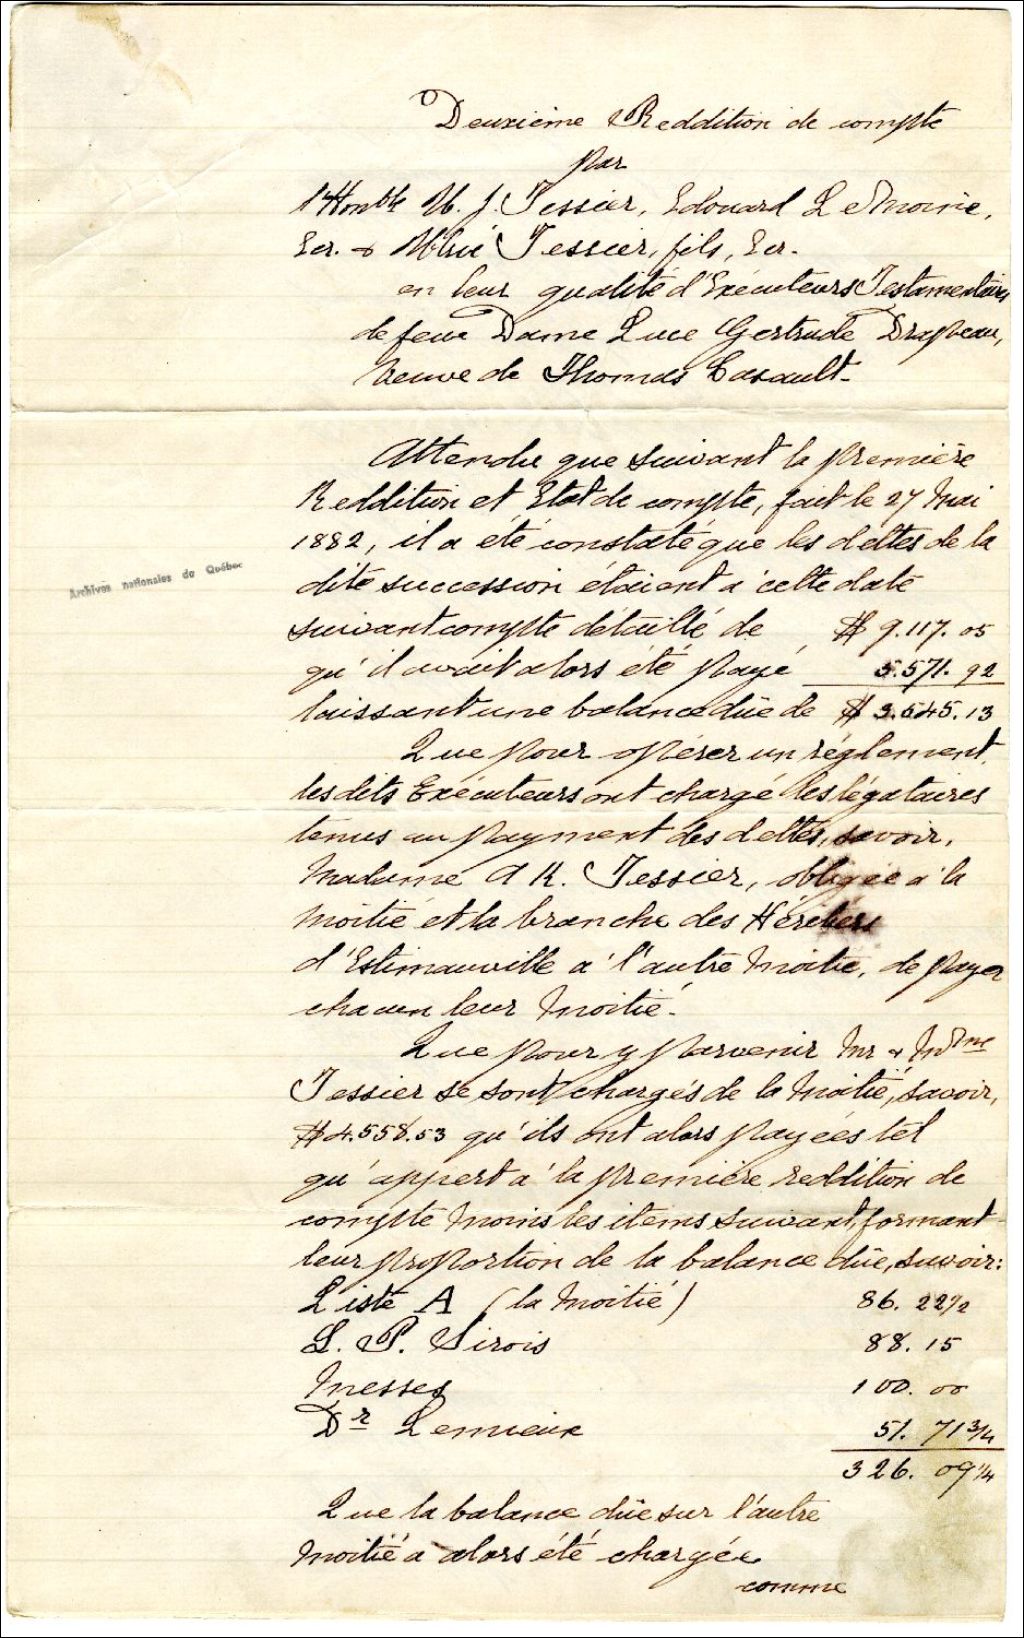 Deuxième Reddition de compte
par
l'Honble U. J. Tessier, Edouard LeMoine,
Ecr. & Ulric Tessier, fils, Ecr.
en leur qualité d'Exécuteurs Testamentaires
de feue Dame Luce Gertrude Drapeau,
Veuve de Thomas Casault.
Attendu que suivant la première
Reddition et Etat de compte, fait le 27 Mai
1882, il a été constaté que les dettes de la
dite succession étaient à cette date
suivant compte détaillé de $ 9.117.05
qu'il avait alors été payé 5.571.92
laissant une balance dûe de $ 3.545.13
Que pour opérer un règlement,
les dits Exécuteurs ont chargé les légataires
tenus au payment des dettes, savoir,
Madame U. J. Tessier, obligée à la
moitié et la branche des Héritiers
d'Estimauville à l'autre moitié, de payer
chacun leur moitié.
Que pour y parvenir Mr & Mdme
Tessier se sont chargés de la moitié, savoir,
$4.558.53 qu'ils ont alors payées tel
qu'appert à la première reddition de
compte moins les items suivant, formant
leur proportion de la balance dûe, savoir:
Liste A (la moitié) 86.22½
L. P. Sirois 88.15
Messes 100.00
Dr Lemieux 51.71¾
326.09¼
Que la balance dûe sur l'autre
moitié a alors été chargée
comme
Archives nationales du Québec